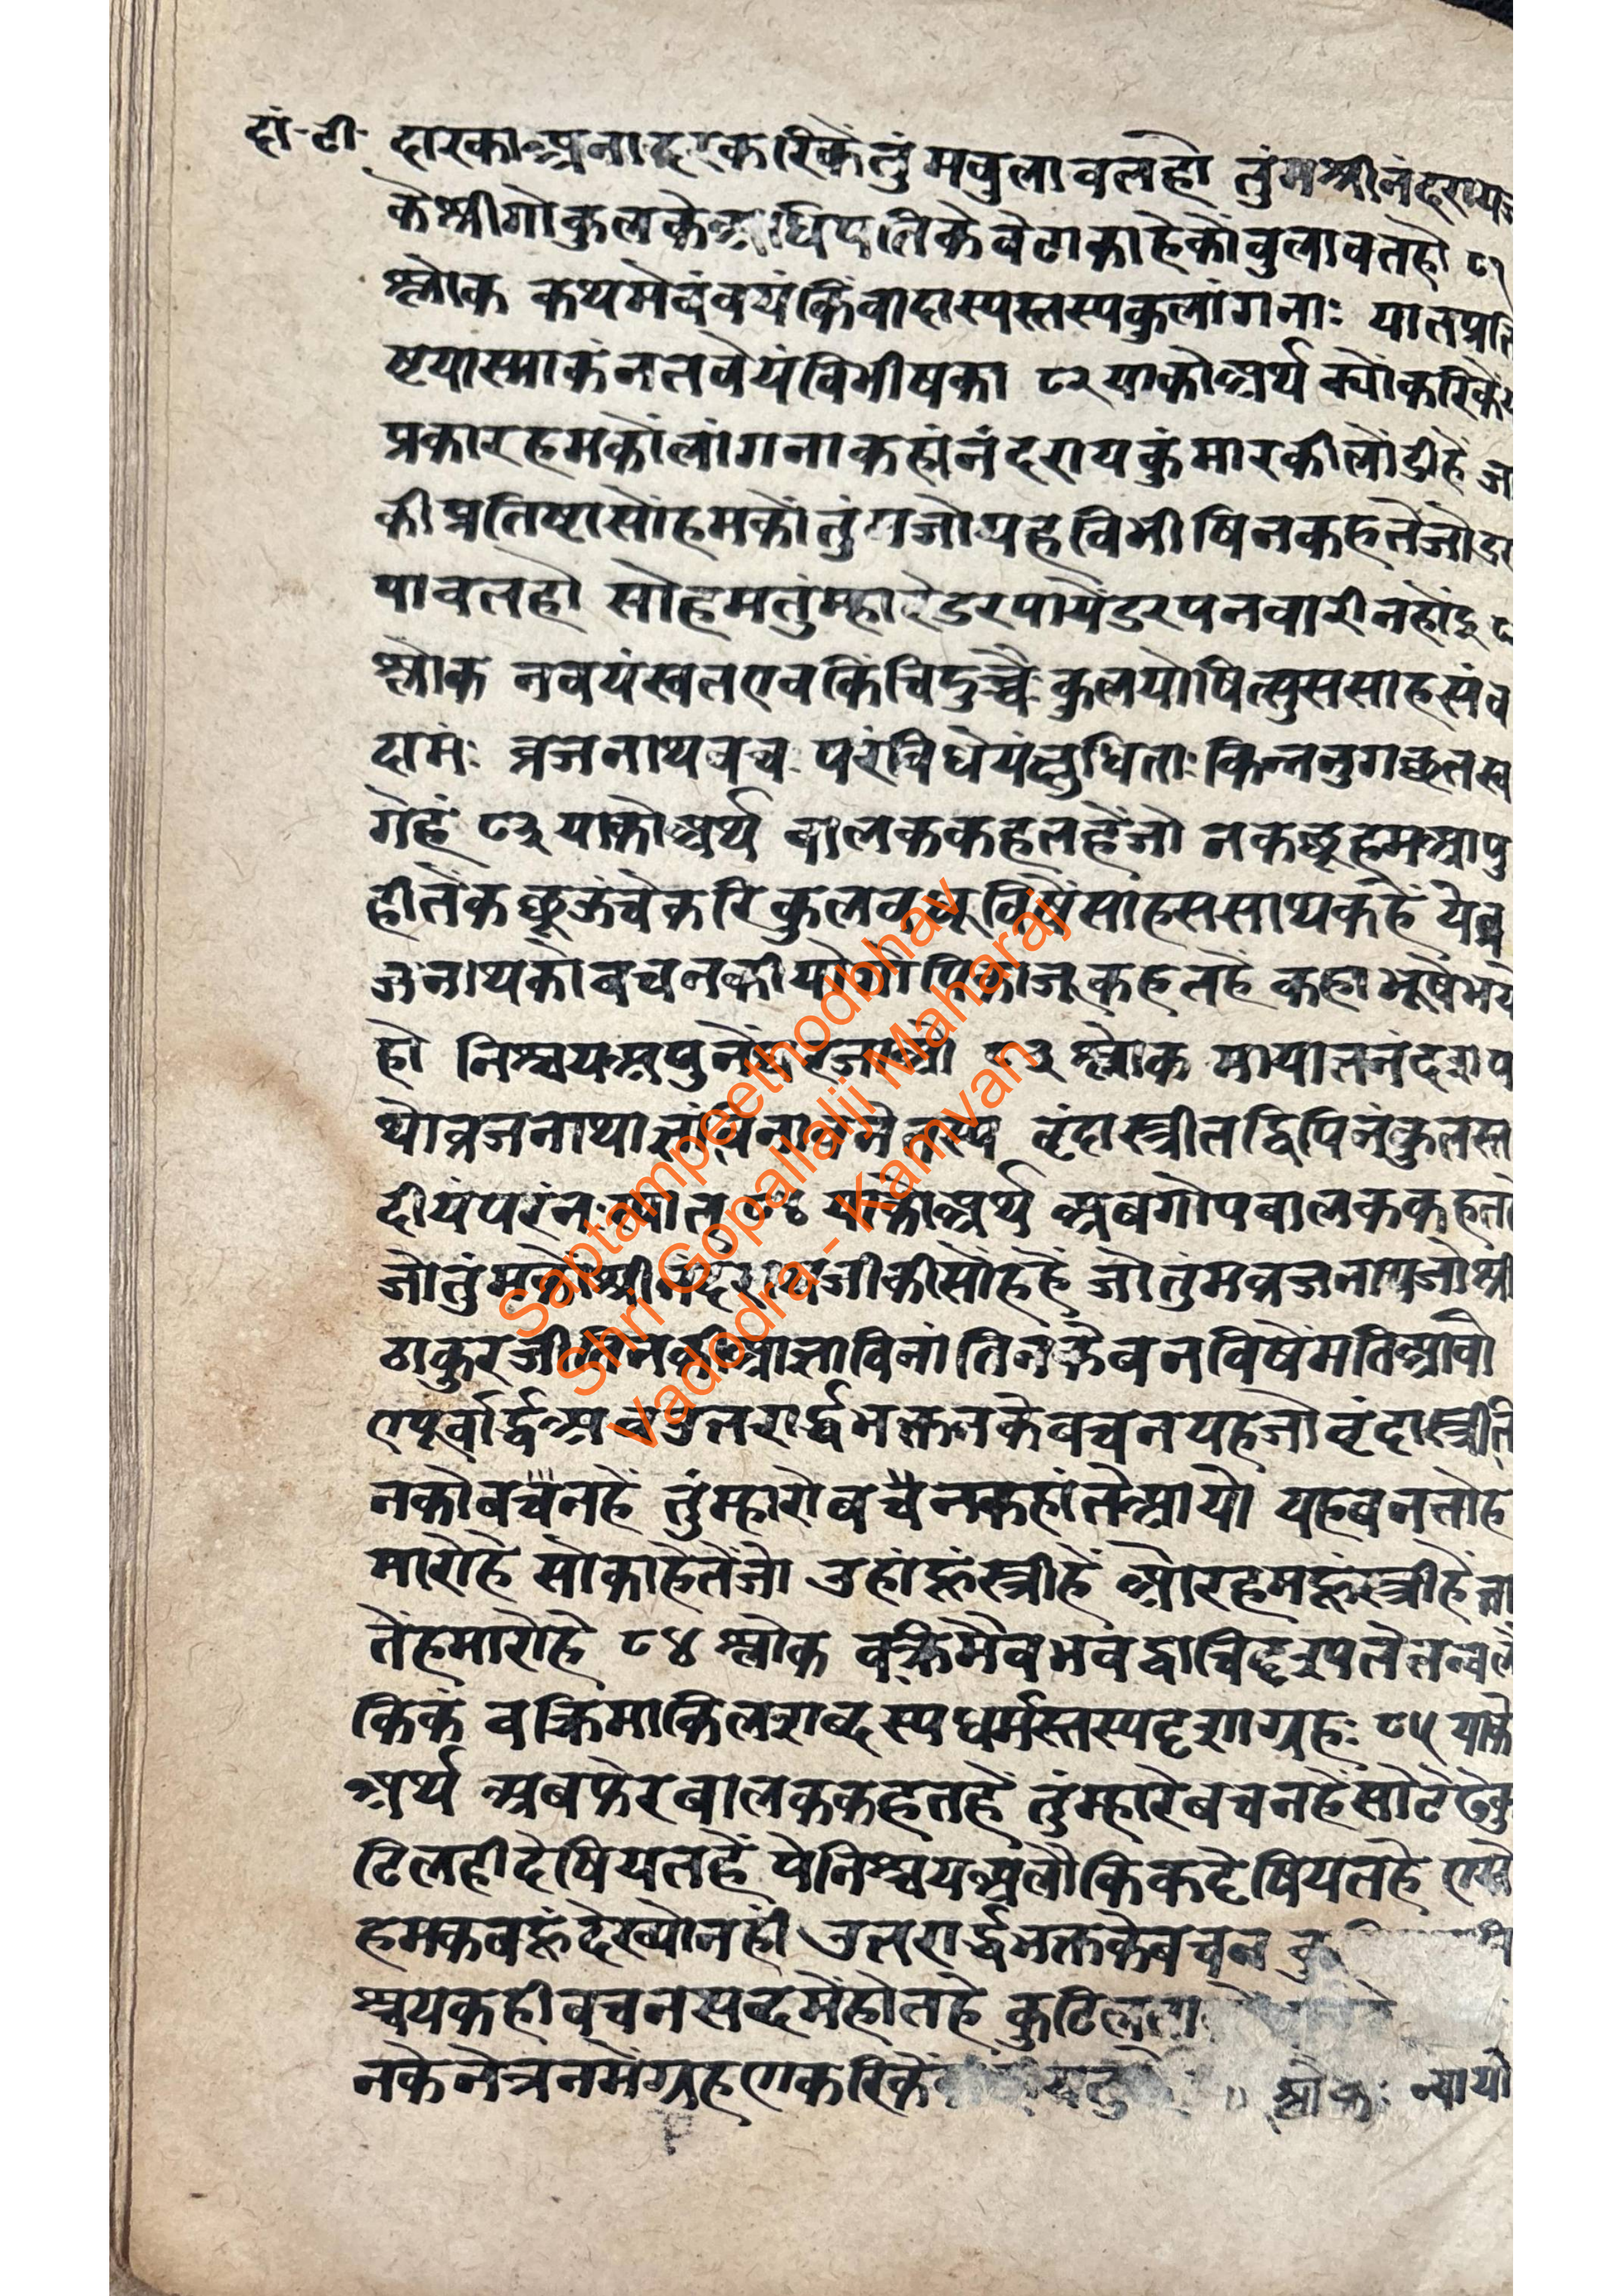 दां-टी- दारकाअनादरकरिकेंतुंमबुलावतहौ तुंमश्रीनंदराय
केश्रीगोकुलकेअधिपतिकेबेटाकाहेकोंबुलावतहौ ८१
श्लोक कथमेवंवयंकिंवादास्यस्तस्यकुलांगनाः यातप्रति
ष्टयास्माकंनतवेयंविभीषका ८२ याकोअर्थ क्योंकरिकें
प्रकारहमकोंलांगनाकहांनंदरायकुंमारकीलोंडीहैं ज
कीप्रतिष्टासोंहमकोंतुंमजोयहेविभीषिनकहतेंजोडर
पावतहौ सोहमतुंम्हारेडरपायेंडरपनवारीनहींहु
श्लोक नवयंस्वतएवकिंचिदुच्चैःकुलयोषित्सुससाहसंव
दामः ब्रजनाथवच परंविधेयंक्षुधिताःकिन्ननुगच्छतस्व
गेहं ८३ याकोअर्थ बालककहतहैंजो नकछूहमआपु
हीतेंकछूऊंचेकरिकुलवधूविषेंसाहससाथकहैं येव्र
जनाथकोबचनकीयोगोपिकाजूकहतहें कहाभूषेभये
हौ निश्चयअपुनेंघरजाओ ८३ श्लोक मायातनंदशप
थोव्रजनाथाज्ञांविनावनेतस्य वृंदास्त्रीतद्विपिनंकुलस्त
दीयंपरंनःस्यात् ८४ याकोअर्थ अबगोपबालककहत
जोतुंमकोंश्रीनंदरायजीकीसोंहहैं जोतुंमव्रजनाथजोश्री
ठाकुरजीतिनकीआज्ञाविनांतिनकेबनविषेंमतिआवो
एपूर्वार्द्धअबउतरार्द्धभक्तनकेबचनयहजोवृंदास्त्रीति
नकोबचैनहें तुंम्हारोबचैनकहांतेआयो यहबनतोह
मारोहै सोकाहेतेंजो उहांहूंस्त्रीहें औरहमहूंस्त्रीहेंता
तेंहमारोहे ८४ श्लोक वक्रिमैवभवद्वाचिदृश्यतेतन्वलौ
किकं वक्रिमाकिलशब्दस्यधर्मस्तस्यदृशाग्रहः ८५ याको
अर्थ अबफेरबालककहतहें तुंम्हारेबचनहेंसोटेढेकु
टिलहीदेषियतहें पेनिश्चयअलौकिकदेषियतहे एसो
हमकबहूंदेख्योनहीं उतरार्द्धभक्तकेबचन
श्चयकहीबचनसब्दमेंहोतहे कुटिलता
नकेनेत्रनमेंग्रहणकरिकें श्लोकः न्यायो